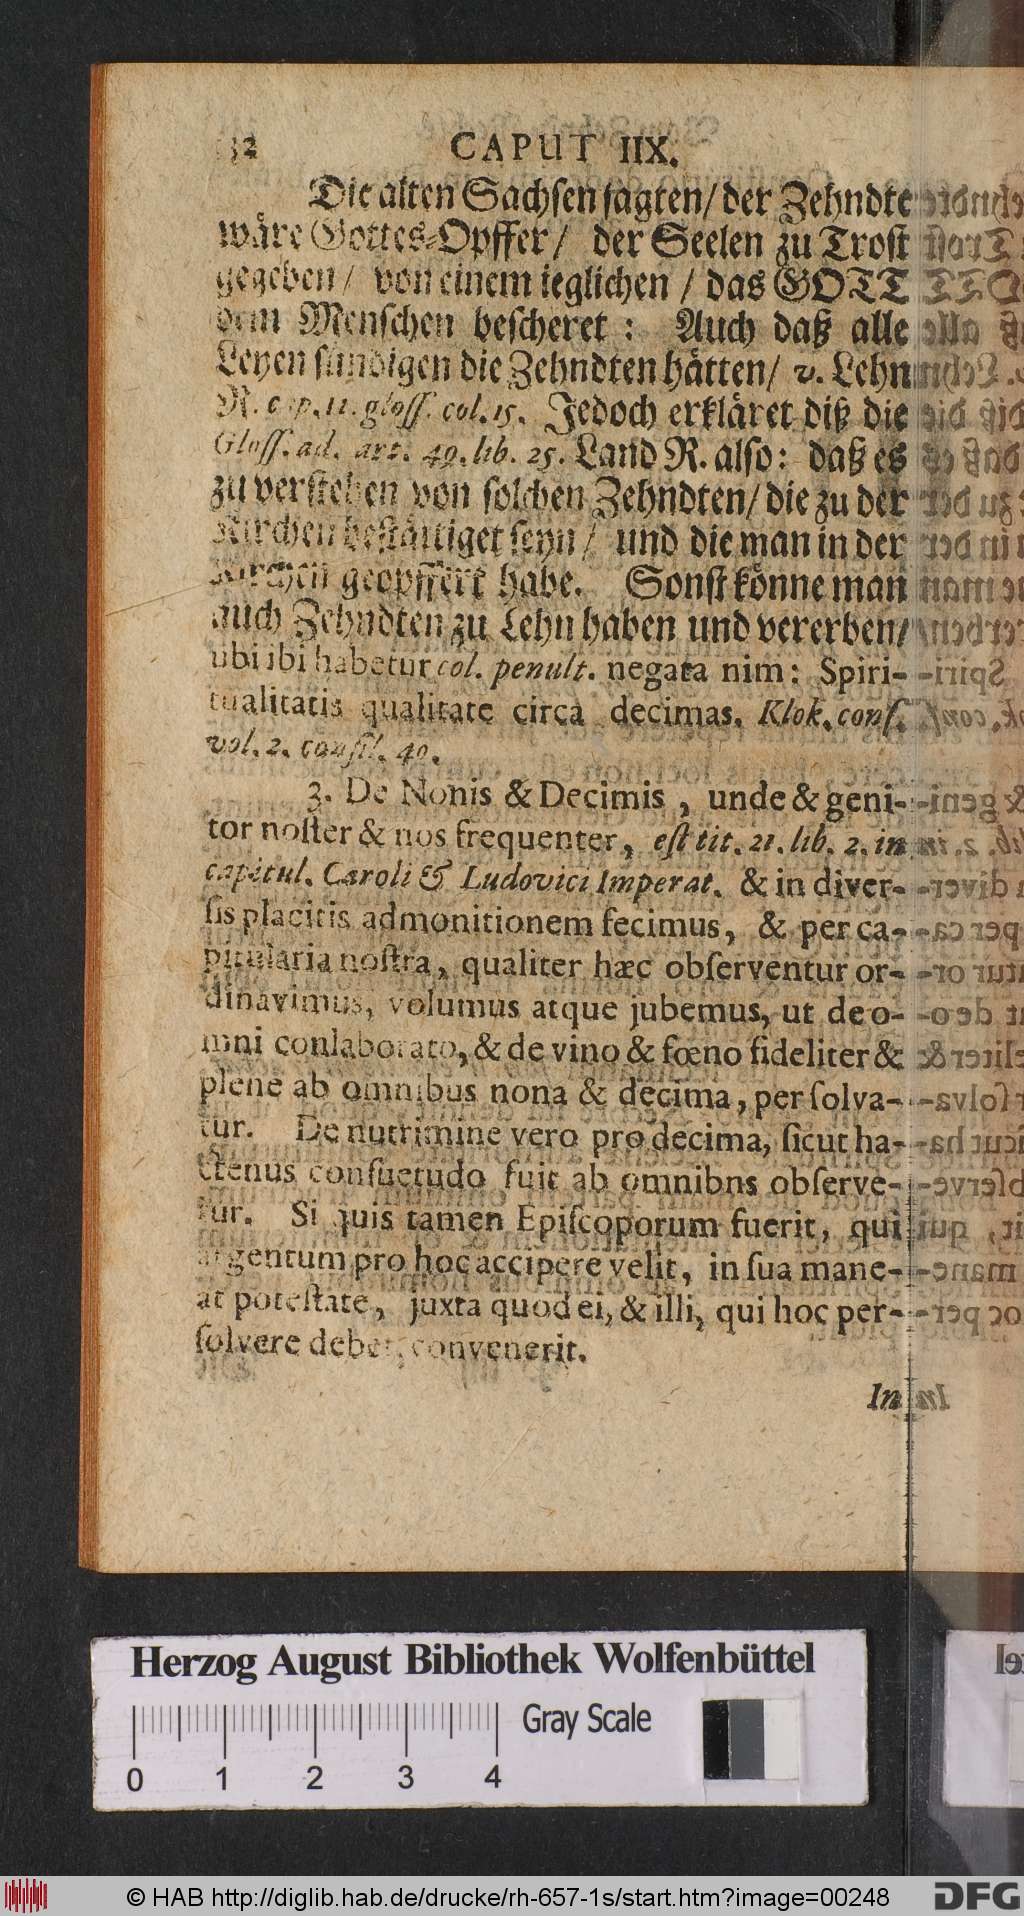 32 CAPUT IIX.
Die alten Sachsen sagten/ der Zehndte
wäre Gottes-Opffer/ der Seelen zu Trost
gegeben/ von einem ieglichen / das GOTT
dem Menschen bescheret : Auch daß alle
Leyen sündigen die Zehndten hätten/ v. Lehn
R. cap. 11. gloss. col. 15. Jedoch erkläret diß die
Gloss. ad. art. 49. lib. 25. Land R. also: daß es
zu verstehen von solchen Zehndten/ die zu der
Kirchen bestättiget seyn/ und die man in der
Kirchen geopffert habe. Sonst könne man
auch Zehndten zu Lehn haben und vererben/
ubi ibi habetur col. penult. negata nim: Spiri-
tualitatis qualitate circa decimas. Klok. conſ.
vol. 2. conſil. 40.
3. De Nonis & Decimis, unde & geni-
tor noſter & nos frequenter, eſt tit. 21. lib. 2. in
capitul. Caroli & Ludovici Imperat. & in diver-
ſis placitis admonitionem fecimus, & per ca-
pitularia noſtra, qualiter hæc obſerventur or-
dinavimus, volumus atque jubemus, ut de o-
mni conlaborato, & de vino & fœno fideliter &
plene ab omnibus nona & decima, perſolva-
tur. De nutrimine vero pro decima, ſicut ha-
ctenus conſuetudo fuit ab omnibns obſerve-
tur. Si quis tamen Epiſcoporum fuerit, qui
argentum pro hoc accipere velit, in ſua mane-
at poteſtate, juxta quod ei, & illi, qui hoc per-
ſolvere debet, convenerit.
In
Herzog August Bibliothek Wolfenbüttel
Gray Scale
0 1 2 3 4
© HAB http://diglib.hab.de/drucke/rh-657-1s/start.htm?image=00248
DFG